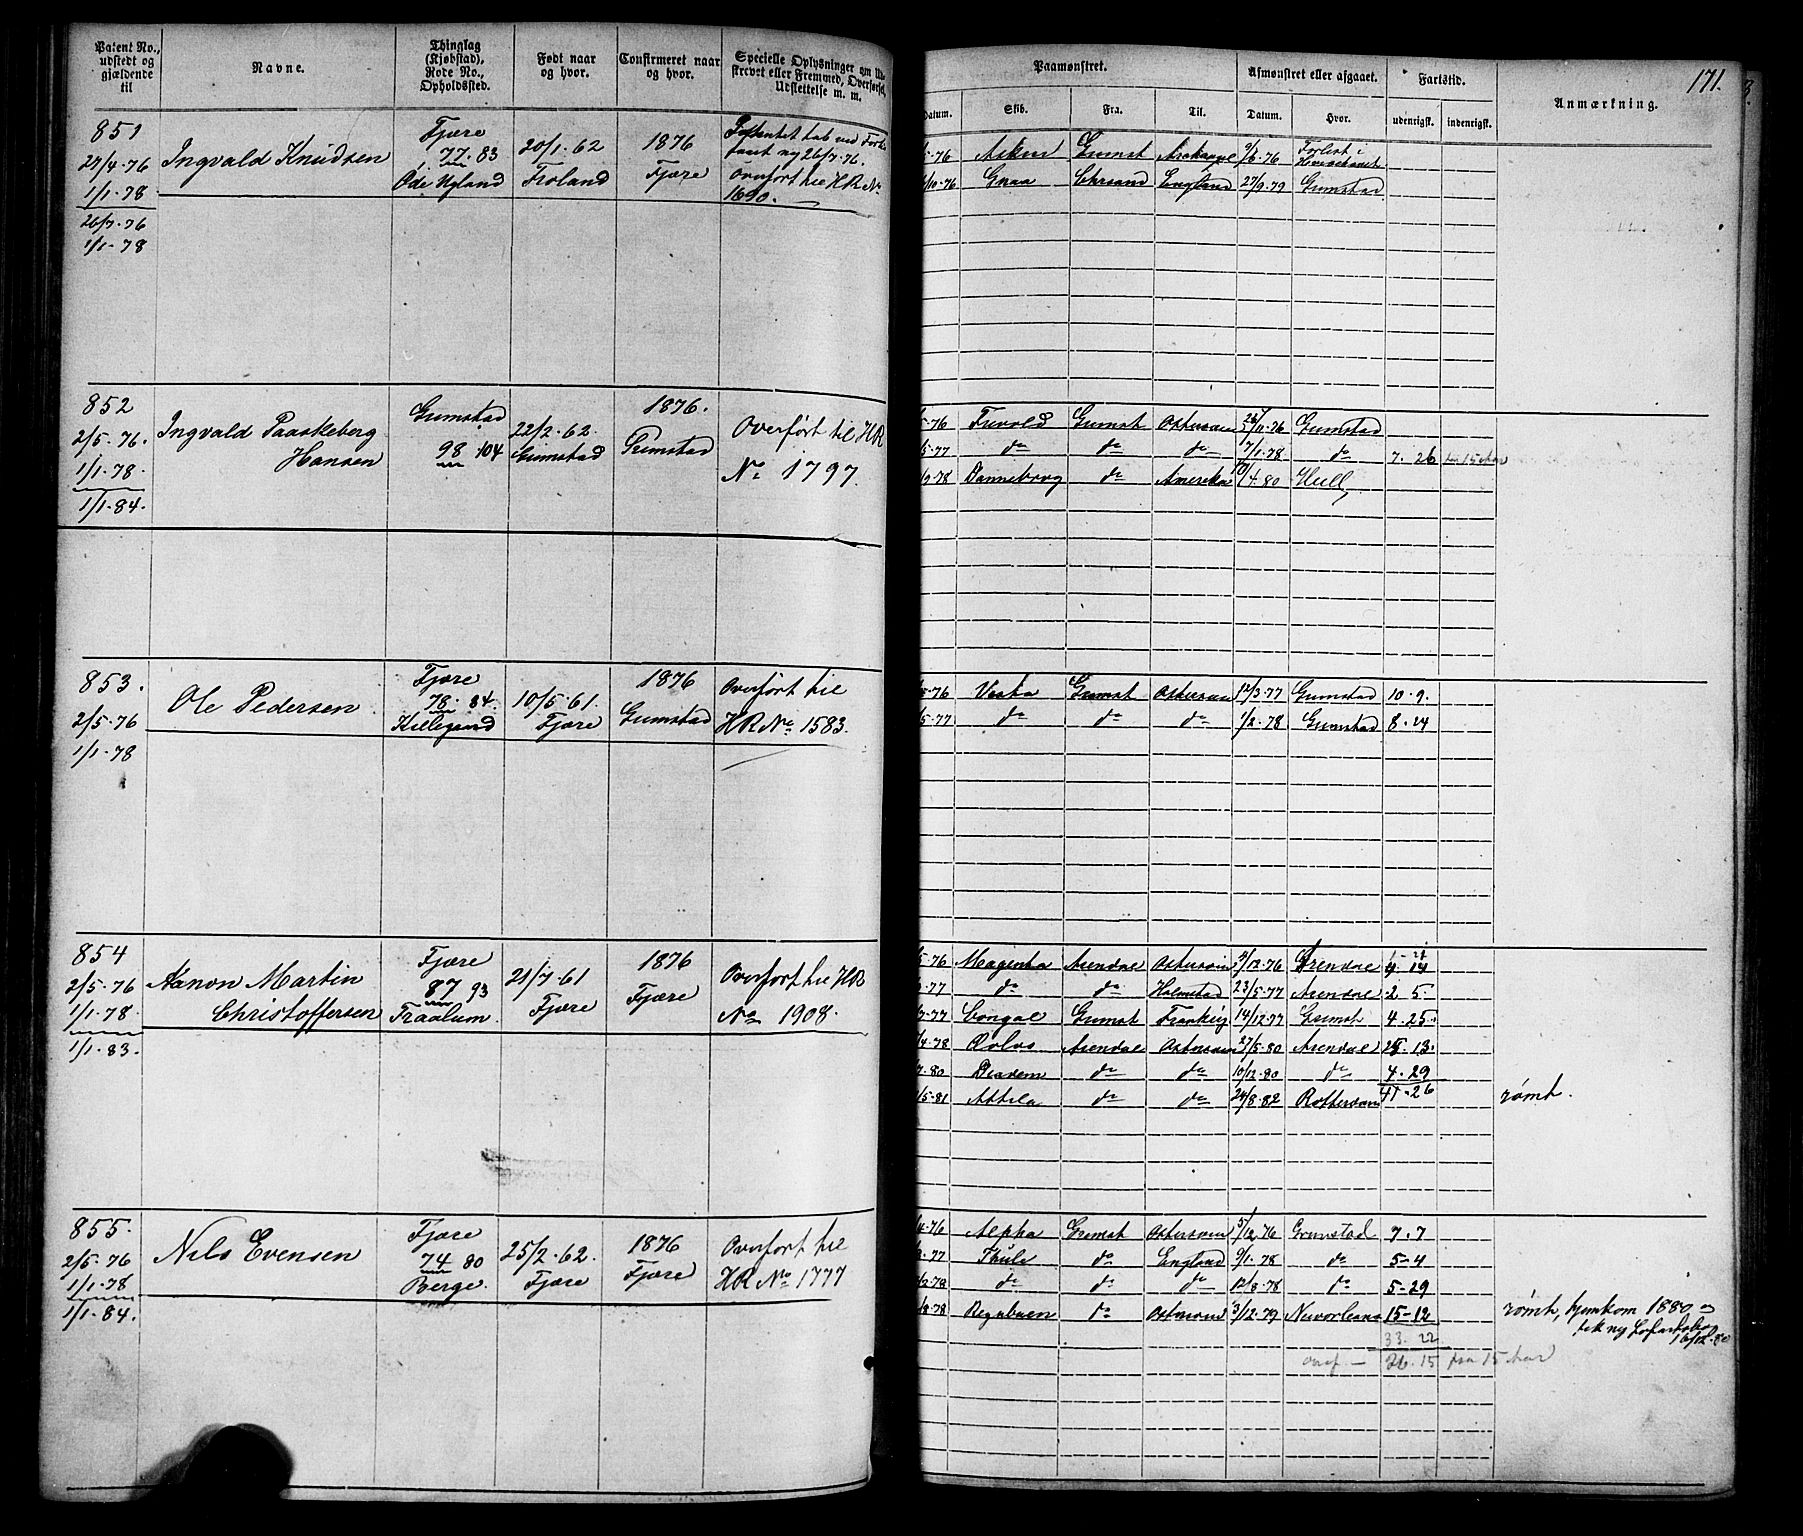 Patent No., udstedt og gjældende til
Navne.
Thinglag (Kjøbstad), Rode No., Opholdssted.
Født naar og hvor.
Confirmeret naar og hvor.
Specielle Oplysninger om Udskrevet eller Fremmed, Overførsel, Udslettelse m. m.
Paamønstret.
Datum. Skib. Fra. Til.
Afmønstret eller afgaaet.
Datum. Hvor.
Fartstid.
udenrigsk. indenrigsk.
Anmærkning.
171.
851
1/1-78
26/7-76
1/1-78
Ingvald Knudsen
Fjære
77. 83
Ode Nyland
20/1-62
Froland
1876
Fjære
ny 26/7-76.
Overført til HR No
1690.
-76 Grmst 76 Forlist i
10-76 Chrsand England 27/9-79 Grmstad
852
2/5-76.
1/1-78.
1/1-84.
Ingvald Paaskeberg
Hansen
Grmstad
98 104
22/2-62.
Grmstad
1876.
Grimstad
Overført til HR
No 1797.
-76 Grmst Østersøen 11-76 Grmstad
5-77 do do do 7/1-78 do 7. 26
9-78 Dannebrog do Amerika 4 80 Hull
853.
2/5-76
1/1-78
Ole Pedersen
Fjære
78. 84.
Killegaard
10/5-61.
Fjære
1876
Grmstad
Overført til
HR No 1583.
-76 Vesta Grmst Østersøen 12/3-77 Grmstad 10. 9.
5-77 do do do 1/2-78 Grmstad 8. 24
854
2/5-76
1/1-78.
1/1-83.
Aanon Martin
Christoffersen
Fjære
87 93
21/7-61
Fjære
1876
Fjære
Overført til HR
No 1908.
5-76 Magenta Arendal Østersøen 12-76 Arendal 4 14
-77 do do Halmstad 23/5-77 Arendal 2 5.
7-77 Grmst 14/12-77 Grimst 4. 25.
4-78 Arendal Østersøen 27/5-80 Arendal 13.
7-80 Diadem do do 10/12-80 do 4. 29
5-81 Attila do do 24/8-82 Rotterdam 41. 26
rømt.
855.
2/5-76
1/1-78
1/1-84.
Nils Evensen
Fjære
74 80
Berge.
25/2-62.
Fjære
1876
Fjære
Overført til
HR No 1777
4-76 Alpha Grmst Østersøen 5/12 76 Grmstad 7. 7
-77 Thule do England 9/1-78 do 5-4
2-78 do do do 12/8-78 do 5-29
8-78 Regnbuen do Østersøen 3/12-79 Neworleans 15-12
rømt, hjemkom 1880 og
fik ny
33. 22
26. 15 fra 15 Aar